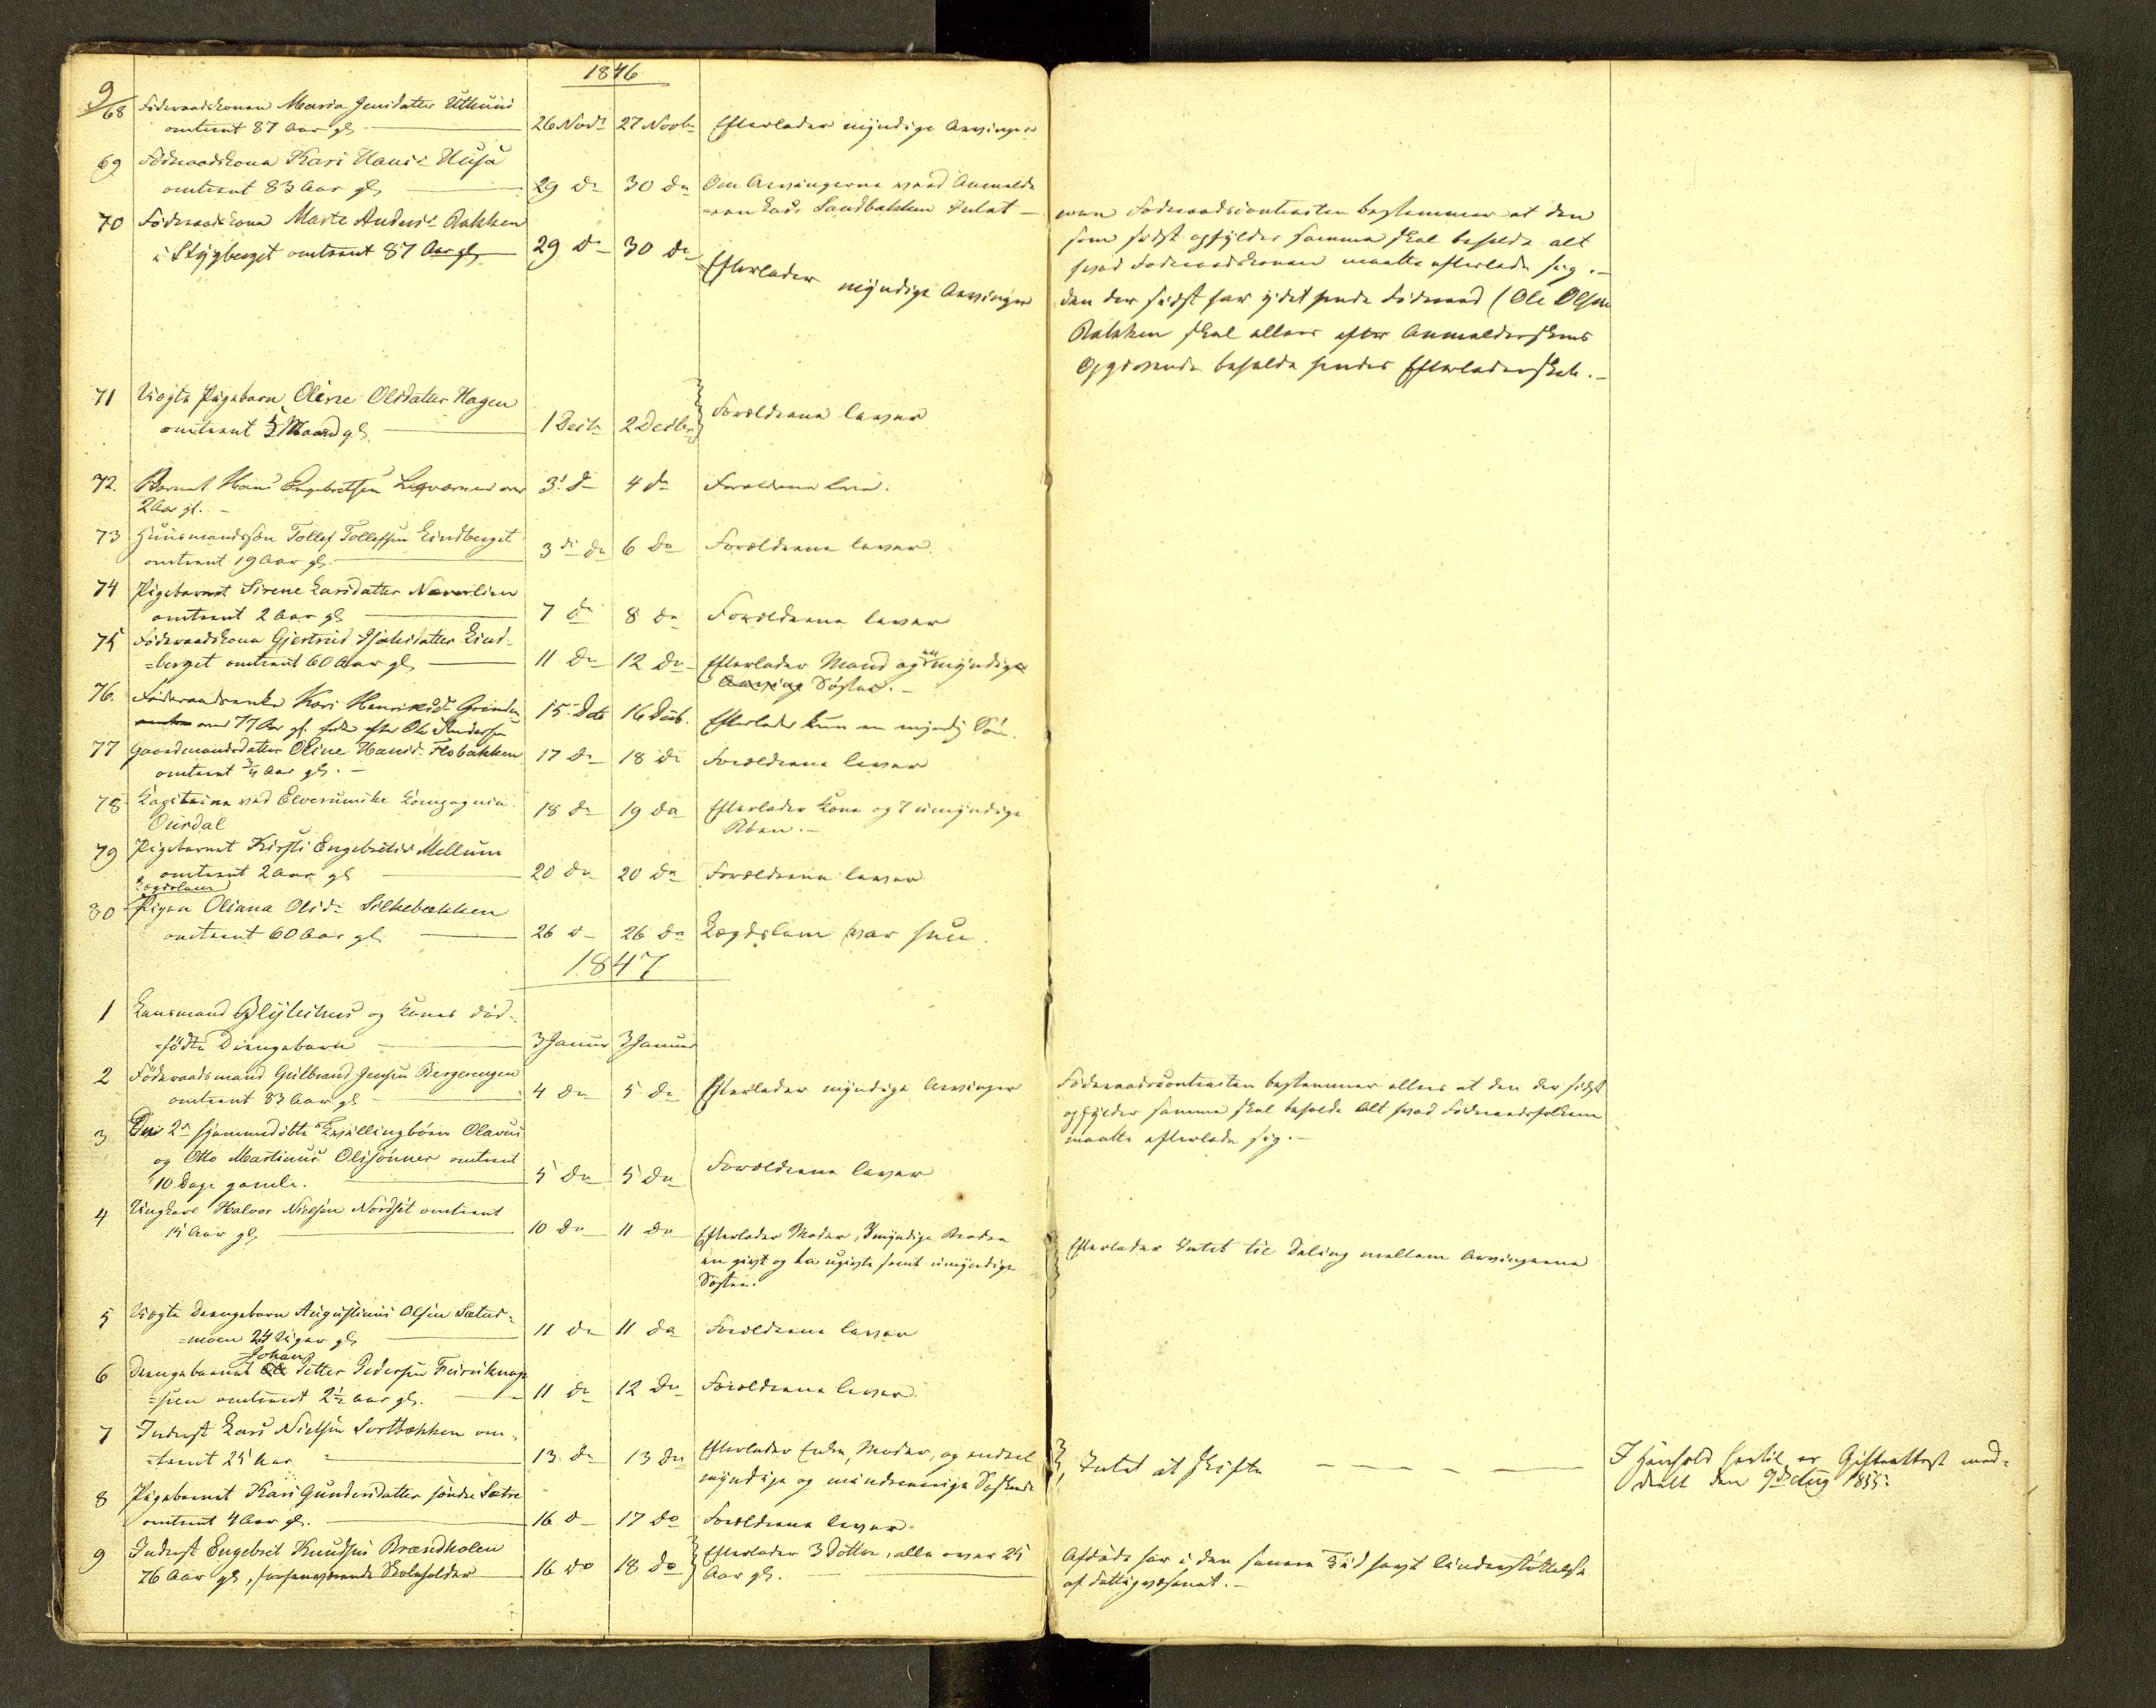 1846
9
68 Föderaadskonen Maria Jensdatter
omtrent 87 Aar gl. 26 Novbr 27 Novbr Efterlader myndige Arvinger
69 Föderaadskone Kari Hansd. Husa
omtrent 83 Aar gl. 29 do 30 do Om Arvingerne veed Anmelde-
=ren Lars Sandbakken Intet
70 Föderaadskone Marte Andersd. Bakken
i Stygberget omtrent 87 Aar gl. 29 do 30 do Efterlader myndige Arvinger
men Föderaadscontracten bestemmer at den
som sidst opfylder samme skal beholde alt
hvad Föderaadskonen maatte efterlade sig.
den der sidst har ydet hende Föderaad (Ole Olsen
Bakken skal ellers efter Anmelderskens
Opgivende beholde hendes Efterladenskab.
71 Uægte Pigebarn Oline Olsdatter Hagen
omtrent ½ Maaned gl. 1 Decbr 2 Decbr Forældrene lever
72. Barnet Hans Engebretsen
2 Aar gl. 3 do 4 do Forældrene leve.
73 Huusmandssön Tollef Tollefsen Lindberget
omtrent 19 Aar gl. 3 do 6 do Forældrene lever.
74 Pigebarnet Sirene Larsdatter Næverlien
omtrent 2 Aar gl. 7 do 8 do Forældrene lever
75 Föderaadskone Gjertrud Lind-
=berget omtrent 60 Aar gl. 11 do 12 do Efterlader Mand og en myndige
Arving Söster.
76. Föderaadsenke Kari Henriksd. Grinden
77 Aar gl. Enke efter Ole Andersen 15 Decbr 16 Decb. Efterlader kun en myndig Sön.
77 Gaardmandsdatter Oline Hansd. Flobakken
omtrent ¾ Aar gl. 17 do 18 do Forældrene lever
78 Capitaine ved Elverumske Compagnie
Ourdal 18 do 19 do Efterlader Kone og 7 umyndige
Börn.
79 Pigebarnet Kirsti Engebretsd. Mellum
omtrent 2 Aar gl. 20 do 20 do Forældrene lever
Lægdslem
80 Pigen Oliana Olsd. Silkebækken
omtrent 60 Aar gl. 26 do 26 do Lægdslem var hun.
1847
1 Lensmand og Kones död-
=födte Drengebarn 3 Januar 3 Januar
2 Föderaadsmand Gulbrand Jensen Bergerengen
omtrent 83 Aar gl. 4 do 5 do Efterlader myndige Arvinger
Föderaadscontracten bestemmer ellers at den der sidst
opfylder samme skal beholde Alt hvad Föderaadsfolkene
maatte efterlade sig.
3 De 2de hjemmedöbte Tvillingbörn Olavus
og Otto Martinus Olssönner omtrent
10 Dage gamle. 5 do 5 do Forældrene lever
4 Ungkarl Halvor Nielsen Nordset omtrent
15 Aar gl. 10 do 11 do Efterlader Moder, 3 myndige Brödre
en givt og to ugivte samt umyndige
Söstre.
Efterlader Intet til Deling mellem Arvingerne
5 Uægte Drengebarn Augustinus Olsen Sætus-
=moen 24 Uger gl. 11 do 11 do Forældrene lever
Johan
6 Drengebarnet Ole Petter Pedersen
omtrent 2½ Aar gl. 11 do 12 do Forældrene lever
7 Inderst Lars Nielsen Sortbækken om-
=trent 25 Aar 13 do 13 do Efterlader Enke, Moder, og endeel
myndige og mindreaarige Söskende
Intet at skifte
I Henhold hertil er Gifteattest med-
deelt den 9de Aug 1855.
8 Pigebarnet Kari Gundersdatter söndre Sætre
omtrent 4 Aar gl. 16 do 17 do Forældrene lever.
9 Inderst Engebret Knudsen Brændholen
76 Aar gl., forhenværende Skoleholder 16 do 18 do Efterlader 3 Döttre, alle over 25
Aar gl.
Afdöde har i den senere Tid havt Understöttelse
af Fattigvæsenet.